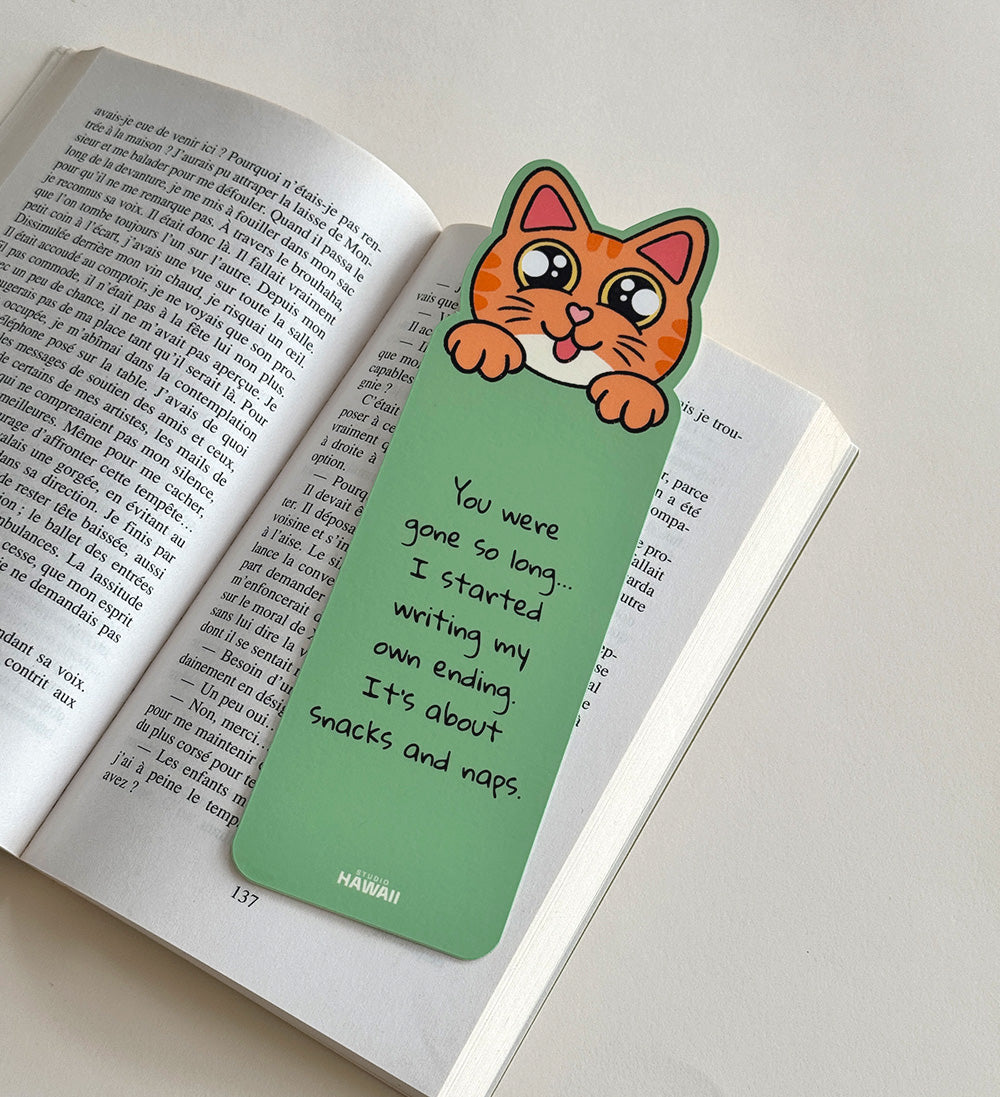 avais-je eue de venir ici ? Pourquoi n'étais-je pas ren-
trée à la maison ? J'aurais pu attraper la laisse de Mon-
sieur et me balader pour me défouler. Quand il passa le
long de la devanture, je me mis à fouiller dans mon sac
pour qu'il ne me remarque pas. À travers le brouhaha,
je reconnus sa voix. Il était donc là. Il fallait vraiment
que l'on tombe toujours l'un sur l'autre. Depuis mon
petit coin à l'écart, j'avais une vue sur toute la salle.
Dissimulée derrière mon vin chaud, je risquai un œil.
Il était accoudé au comptoir, je ne voyais que son pro-
il pas commode, il n'était pas à la fête lui non plus.
ec un peu de chance, il ne m'avait pas aperçue. Je
ugerais pas de ma place tant qu'il serait là. Pour
occupée, je m'abîmai dans la contemplation
éléphone posé sur la table. J'avais de quoi
les messages de soutien des amis et ceux,
de certains de mes artistes, les mails de
qui ne comprenaient pas mon silence,
meilleures. Même pour me cacher,
urage d'affronter cette tempête...
alais une gorgée, en évitant au
dans sa direction. Je finis par
de rester tête baissée, aussi
ion ; le ballet des entrées
mbulances. La lassitude
cesse, que mon esprit
je ne demandais pas
ndant sa voix.
contrit aux
vais que
— J
Il ac
— I
que mo
capables
gnie ?
C'était
poser à ce
vraiment q
à droite à
option.
— Pourq
Il devait ê
ter. Il déposa
voisine et s'in
à l'aise. Le si
lance la conve
part demander
m'enfoncerait d
sur le moral de
sans lui dire la v
dont il se sentait
— Besoin d'ur
dainement en désig
— Un peu oui...
— Non, merci...
pour me maintenir
du plus corsé pour te
— Les enfants m
j'ai à peine le temp
avez ?
is je trou-
r, parce
n a été
ompa-
e pro-
allait
arda
utre
ep-
se
al
à
137
You were
gone so long...
I started
writing my
own ending.
It's about
snacks and naps.
STUDIO
HAWAII